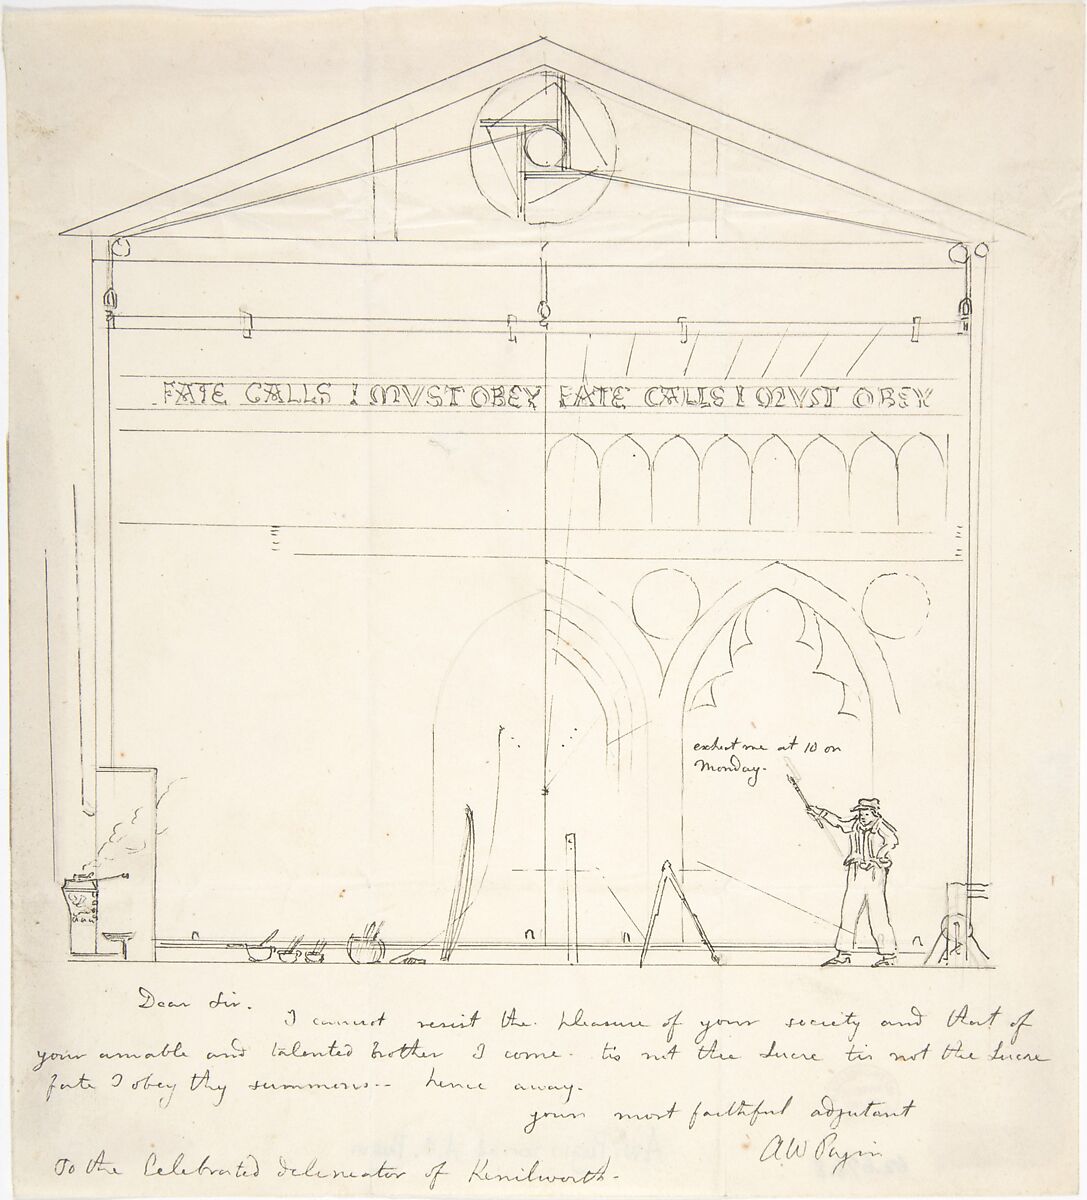 FATE CALLS I MUST OBEY FATE CALLS I MUST OBEY
exhect me at 10 on
Monday.
Dear Sir.
I cannot resist the pleasure of your society and that of
your amiable and talented brother I come. tis not the Lucre tis not the Lucre
fate I obey thy summons-- hence away.
your most faithful adjutant
AW Pugin
To the Celebrated delineator of Kenilworth.